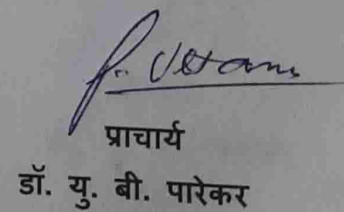 प्राचार्य
डॉ. यु. बी. पारेकर